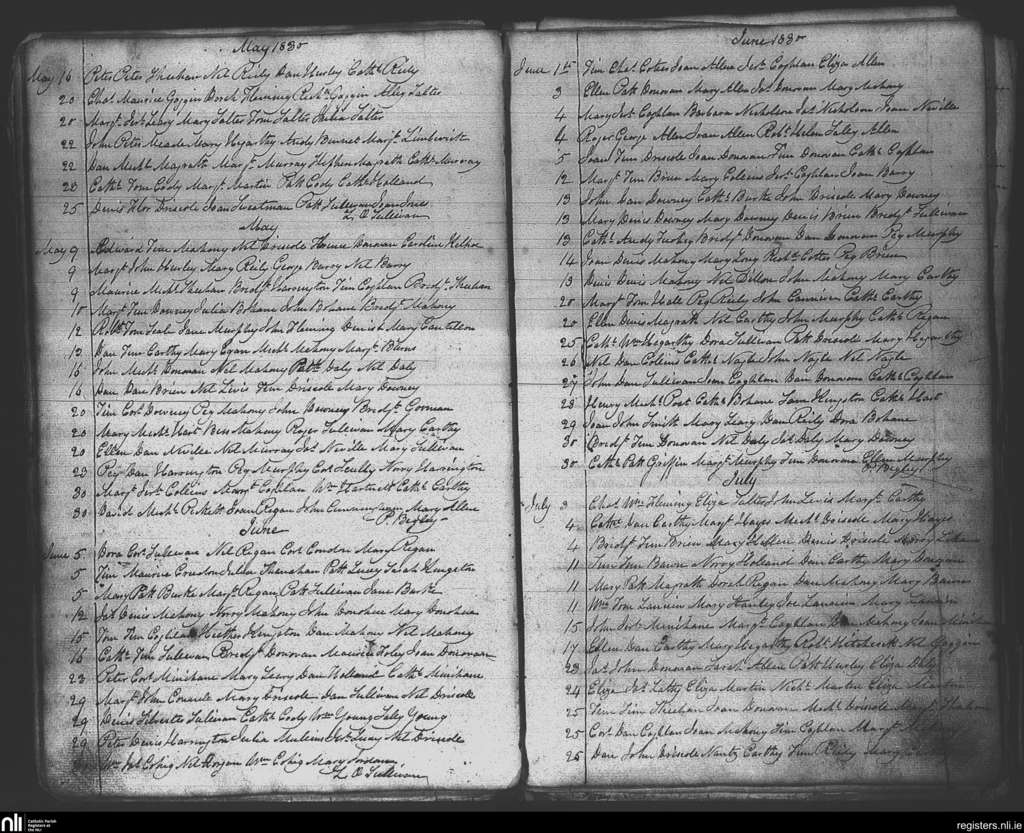 May 1830
May 16 Peter Peter Sheehan Nel Reily Dan Hurley Cathe Reily
20 Chas Maurice Goggin Dorah Fleming Richd Goggin Alley Salter
20 Margt Jas Leary Mary Salter Tom Salter Salter
22 John Peter Meade Mary Hegarthy Andy Bennet Margt Limbrick
22 Dan Michl Magrath Margt Murray Stephen Magrath Cathe Murray
23 Cathe Tom Cody Margt Martin Patk Cody Cathe Holland
25 Denis Flor Driscole Joan Sweetman Patk Sullivan Joan
L O Sullivan
May
May 9 Edward Tim Mahony Nel Driscole Donovan Caroline
9 Margt John Hurley Mary Reily George Barry Nel Barry
9 Maurice Michl Sheehan Bridgt Harrington Tim Coghlan Bridgt Sheehan
10 Margt Tim Downey Julia Bohane John Bohane Bridgt Mahony
12 Robt Tom Jane Murphy John Fleming Denis & Mary
13 Dan Tim Carthy Mary Egan Michl Mahony Margt Burns
16 John Michl Donovan Nel Mahony Daly Nel Daly
16 Dan Dan Brien Nel Levis Tim Driscole Mary Downey
20 Tim Cors Downey Peg Mahony John Downey Bridgt Gorman
20 Mary Michl Hart Bess Mahony Roger Sullivan Mary Carthy
20 Ellen Dan Nel Murray Jas Neville Mary Sullivan
23 Peg Dan Harrington Peg Murphy Cors Scully Norry Harrington
30 Margt Jas Collins Margt Coghlan Wm Hartnett Cathe Carthy
30 David Michl Joan Regan John Cunningham Mary Allen
P. Begley
June
June 5 Dora Cors Sullivan Nel Regan Cors Condon Mary Regan
5 Tim Maurice Condon Julia Shanahan Patk Lucey Sarah Kingston
5 Mary Patk Burke Margt Regan Patk Sullivan Jane Burke
12 Jas Denis Mahony Norry Mahony John Donohue Mary Donohue
15 Tom Tim Coghlan Kingston Dan Mahony Nel Mahony
16 Cathe Tim Sullivan Bridgt Donovan Maurice Foley Joan Donovan
23 Peter Cors Minihane Mary Leary Dan Holland Cathe Minihane
29 Margt John Mary Driscole Dan Sullivan Nel Driscole
29 Denis Silvester Sullivan Cathe Cody Wm Young Sally Young
29 Peter Denis Harrington Julia Mullins Jas Leary Nel Driscole
Wm Jas Nel Horgan Wm Mary
L O Sullivan
June 1830
June 1st Tim Chas Cotter Joan Allen Jas Coghlan Eliza Allen
3 Ellen Patk Donovan Mary Allen Jas Donovan Mary Mahony
4 Mary Jas Coghlan Barbara Nicholson Jas Nicholson Joan Neville
4 Roger George Allen Joan Allen Robt Helen Sally Allen
5 Joan Tim Driscole Joan Donovan Tim Donovan Cathe Coghlan
12 Margt Tim Brien Mary Collins Jas Coghlan Joan Barry
13 John Dan Downey Cathe Burke John Driscole Mary Downey
13 Mary Denis Downey Mary Downey Denis Brien Bridgt Sullivan
13 Cathe Andy Bridgt Donovan Dan Donovan Peg Murphy
14 Joan Denis Mahony Mary Long Richd Cotter Peg Brien
13 Denis Denis Mahony Nel Dillon John Mahony Mary Carthy
20 Margt Tom Hale Peg Reily John Cathe Carthy
20 Ellen Denis Magrath Nel Carthy John Murphy Cathe Regan
25 Cathe Wm Hegarthy Dora Sullivan Patk Driscole Mary Hegarthy
26 Nel Dan Collins Cathe Nagle John Nagle Nel Nagle
27 John Dan Sullivan Joan Coghlan Dan Donovan Cathe Coghlan
28 Henry Michl Cathe Bohane Sam Kingston Cathe Hart
29 Joan John Smith Mary Leary Dan Reily Dora Bohane
30 Bridgt Tim Donovan Nel Daly Jas Daly Mary Downey
30 Cathe Patk Griffin Margt Murphy Tim Donovan Ellen Murphy
P. Begley
July
July 3 Chas Wm Fleming Eliza Salter John Levis Margt Carthy
4 Cathe Dan Carthy Margt Hayes Michl Driscole Mary Hayes
4 Bridgt Tim Brien Mary Denis Driscole Norry
11 Tim Tim Norry Holland Dan Carthy Mary
11 Mary Patk Magrath Dorah Regan Dan Mahony Mary
11 Wm Tom Mary Stanley Joe Mary
15 John Jas Minihane Margt Coghlan Dan Mahony Joan Minihane
17 Ellen Dan Carthy Mary Hegarthy Robt Nel Goggin
23 Jas John Donovan Sarah Allen Patk Hurley Eliza Daly
24 Eliza Jas Eliza Martin Nichs Martin Eliza
25 Tim Tim Sheehan Joan Donovan Michl Driscole Margt
25 Cors Dan Coghlan Joan Mahony Tim Coghlan Margt
25 Dan John Driscole Nancy Carthy Tim Reily Mary
nli Catholic Parish Registers at the NLI
registers.nli.ie